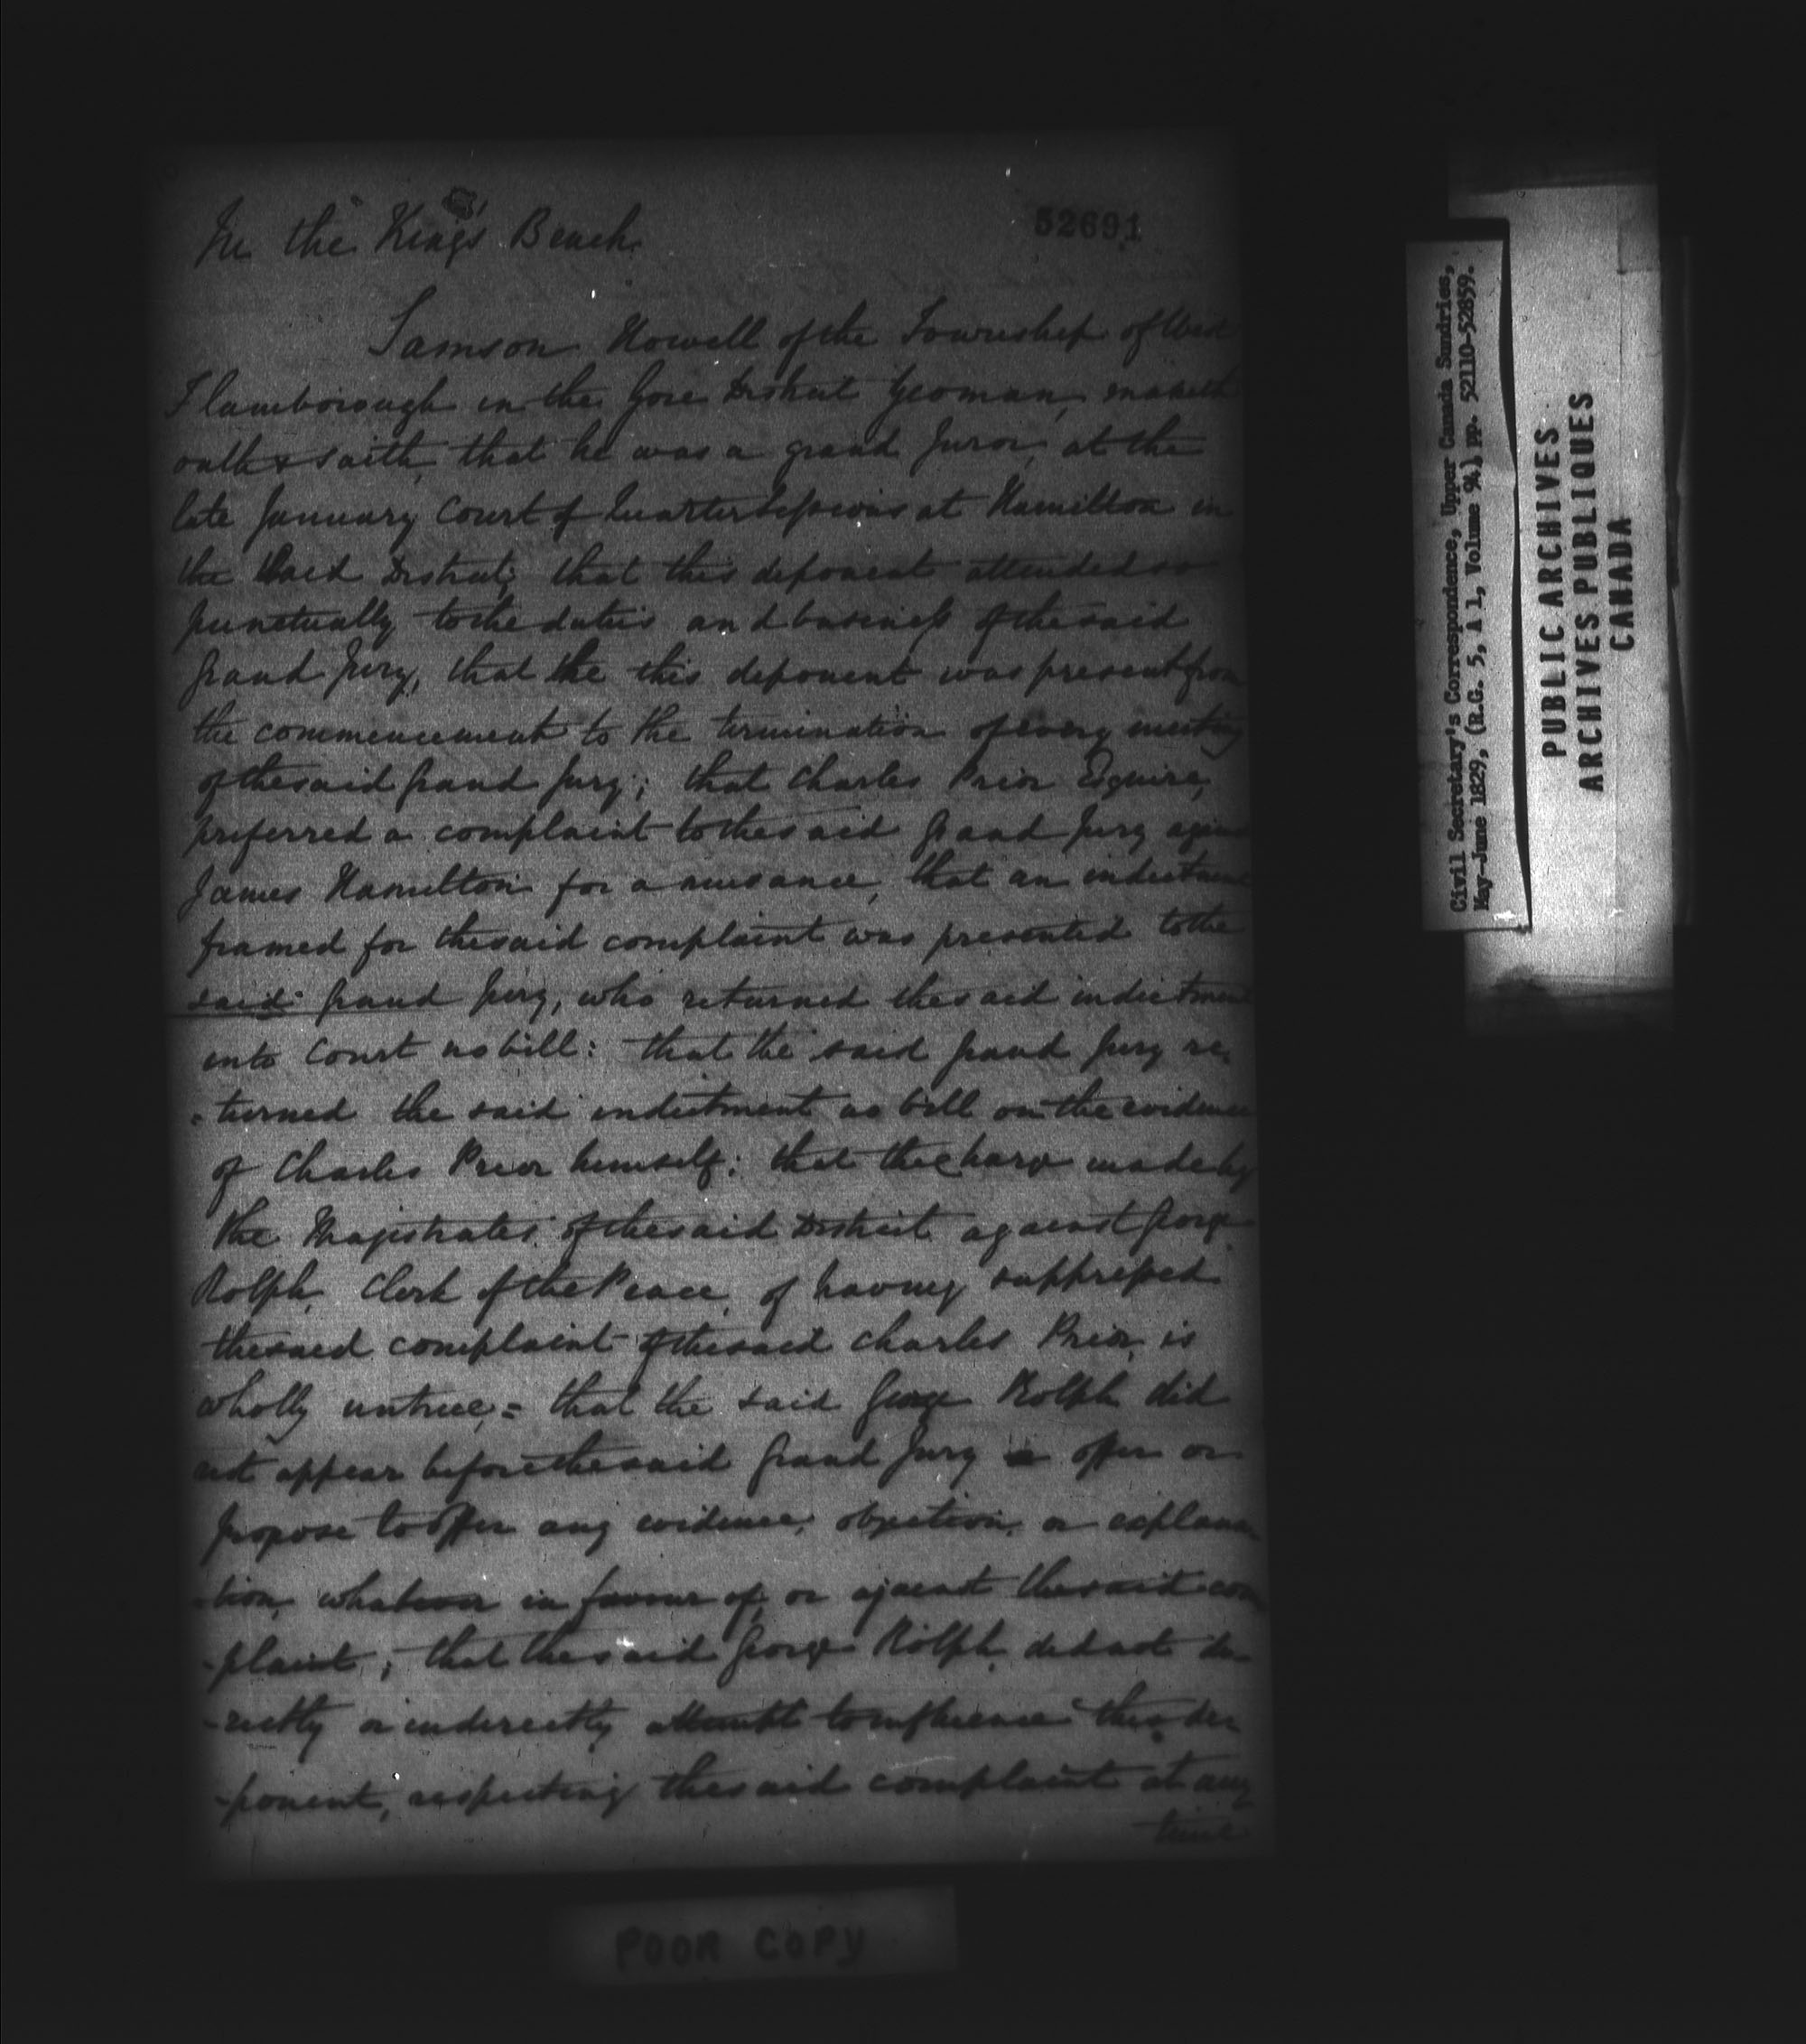 In the King's Bench
52691
Samson Howell of the Township of West
Flamborough in the Gore District Yeoman, maketh
oath & saith, that he was a grand Juror, at the
late January Court of Quarter Sessions at Hamilton in
the said District; that this deponent attended so
punctually to the duties and business of the said
Grand Jury, that the this deponent was present from
the commencement to the termination of every meeting
of the said Grand Jury; that Charles Prior Esquire,
preferred a complaint to the said Grand Jury against
James Hamilton for a nuisance, that an indictment
framed for the said complaint was presented to the
said Grand Jury, who returned the said indictment
into Court no bill: that the said Grand Jury re-
-turned the said indictment no bill on the evidence
of Charles Prior himself: that the charge made by
the Magistrates of the said District against George
Rolph, Clerk of the Peace, of having suppressed
the said complaint of the said Charles Prior, is
wholly untrue,= that the said George Rolph did
not appear before the said Grand Jury offer or
propose to offer any evidence, objection, or explana
-tion, whatever in favour of, or against the said com
-plaint; that the said George Rolph, did not di-
-rectly or indirectly attempt to influence this de-
-ponent, respecting the said complaint at any
time
POOR COPY
Civil Secretary's Correspondence, Upper Canada Sundries,
May-June 1829, (R.G. 5, A 1, Volume 94) pp. 52110-52859.
PUBLIC ARCHIVES
ARCHIVES PUBLIQUES
CANADA